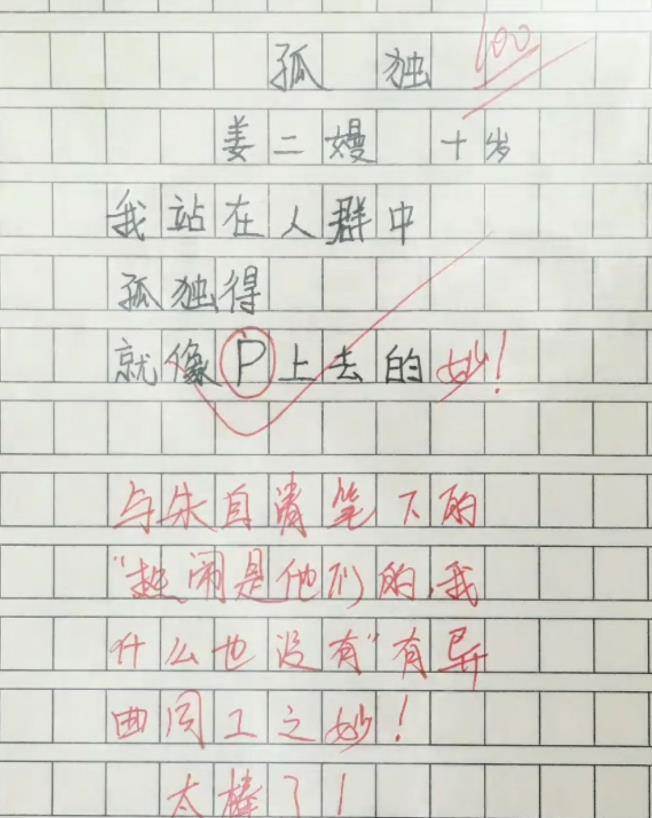 孤独 100
姜二嫚 十岁
我站在人群中
孤独得
就像P上去的 妙！
与朱自清笔下的
“热闹是他们的，我
什么也没有”有异
曲同工之妙！
太棒了！